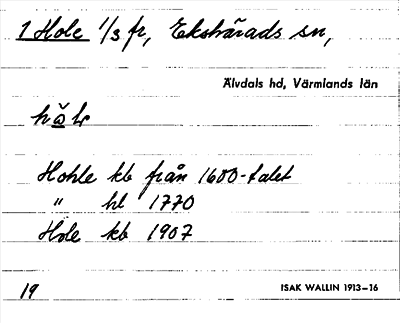 1 Hole 1/3 fr, Ekshärads sn,
Älvdals hd, Värmlands län
Hohle kb från 1600-talet
" hl 1770
Hole kb 1907
19
ISAK WALLIN 1913-16